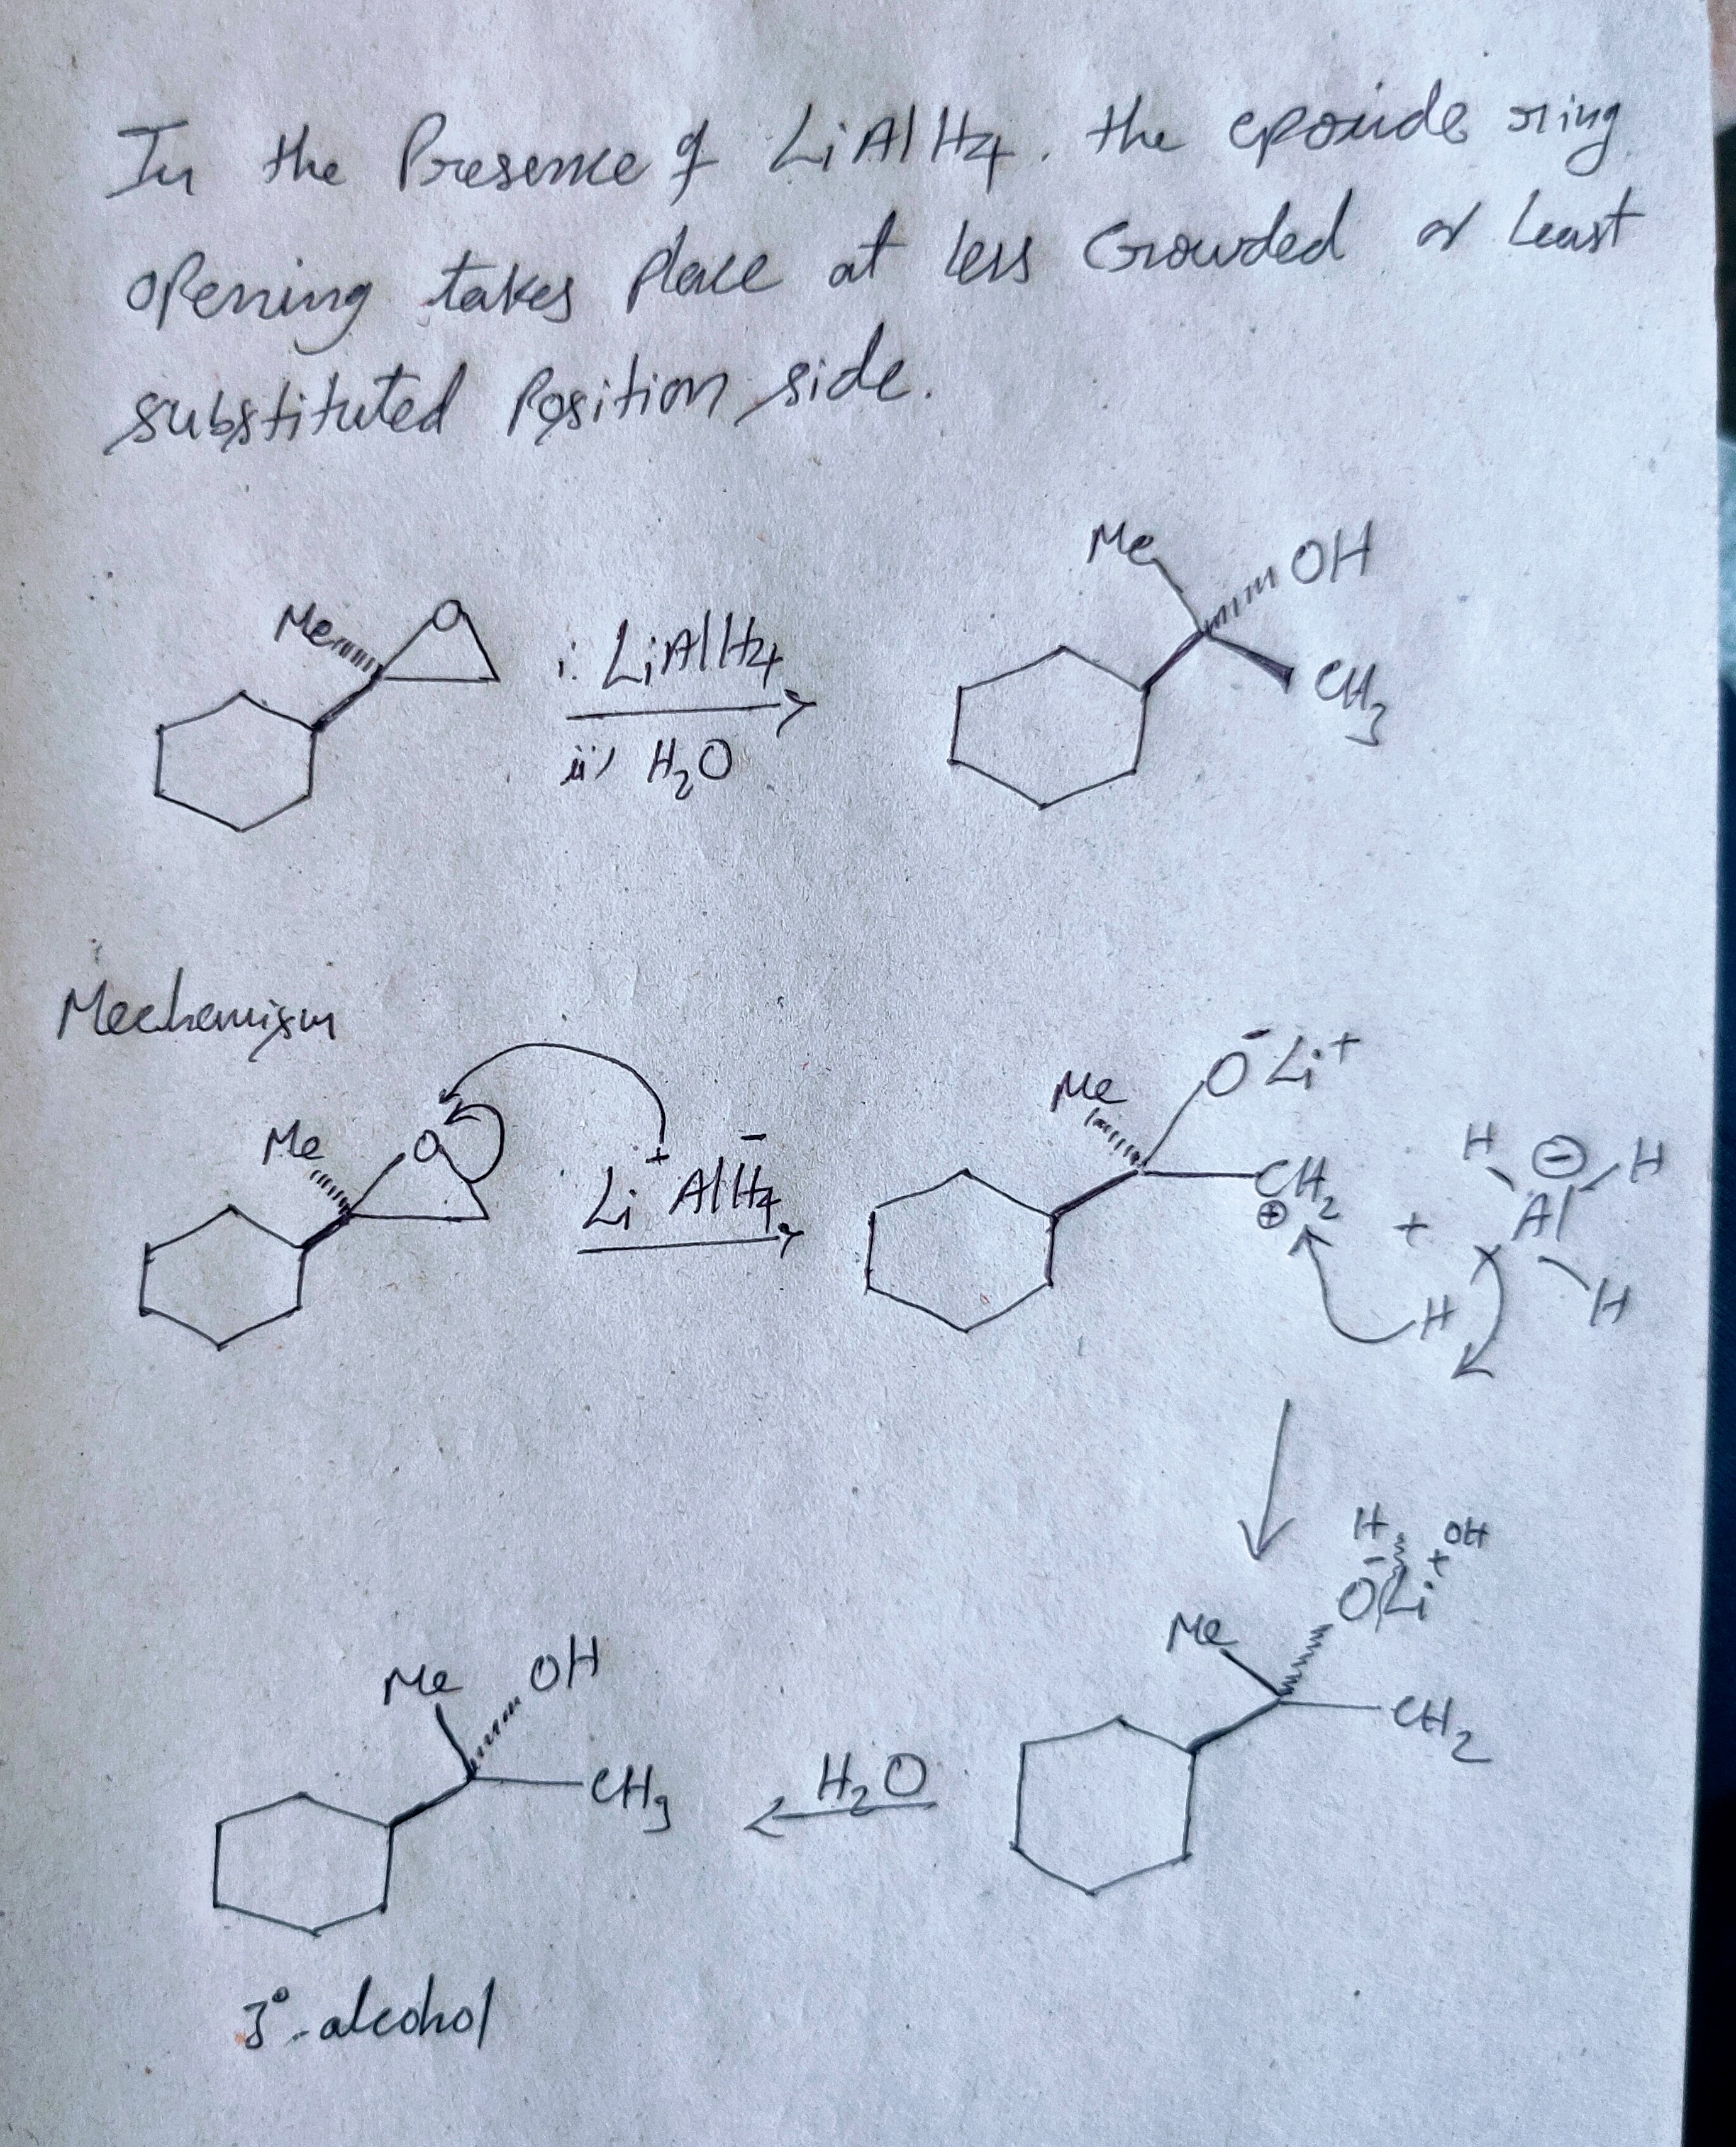 In the Presence of LiAlH4. the epoxide ring
opening takes place at less Crowded or Least
substituted Position side.
Me OH
Me O i. LiAlH4
ii) H2O CH3
Mechanism
Me O Li+ AlH4-
Me O- Li+ CH2 ⊕ + H ⊖ H Al H H
H OH
Me O- Li+ CH2
Me OH CH3 H2O
3°-alcohol